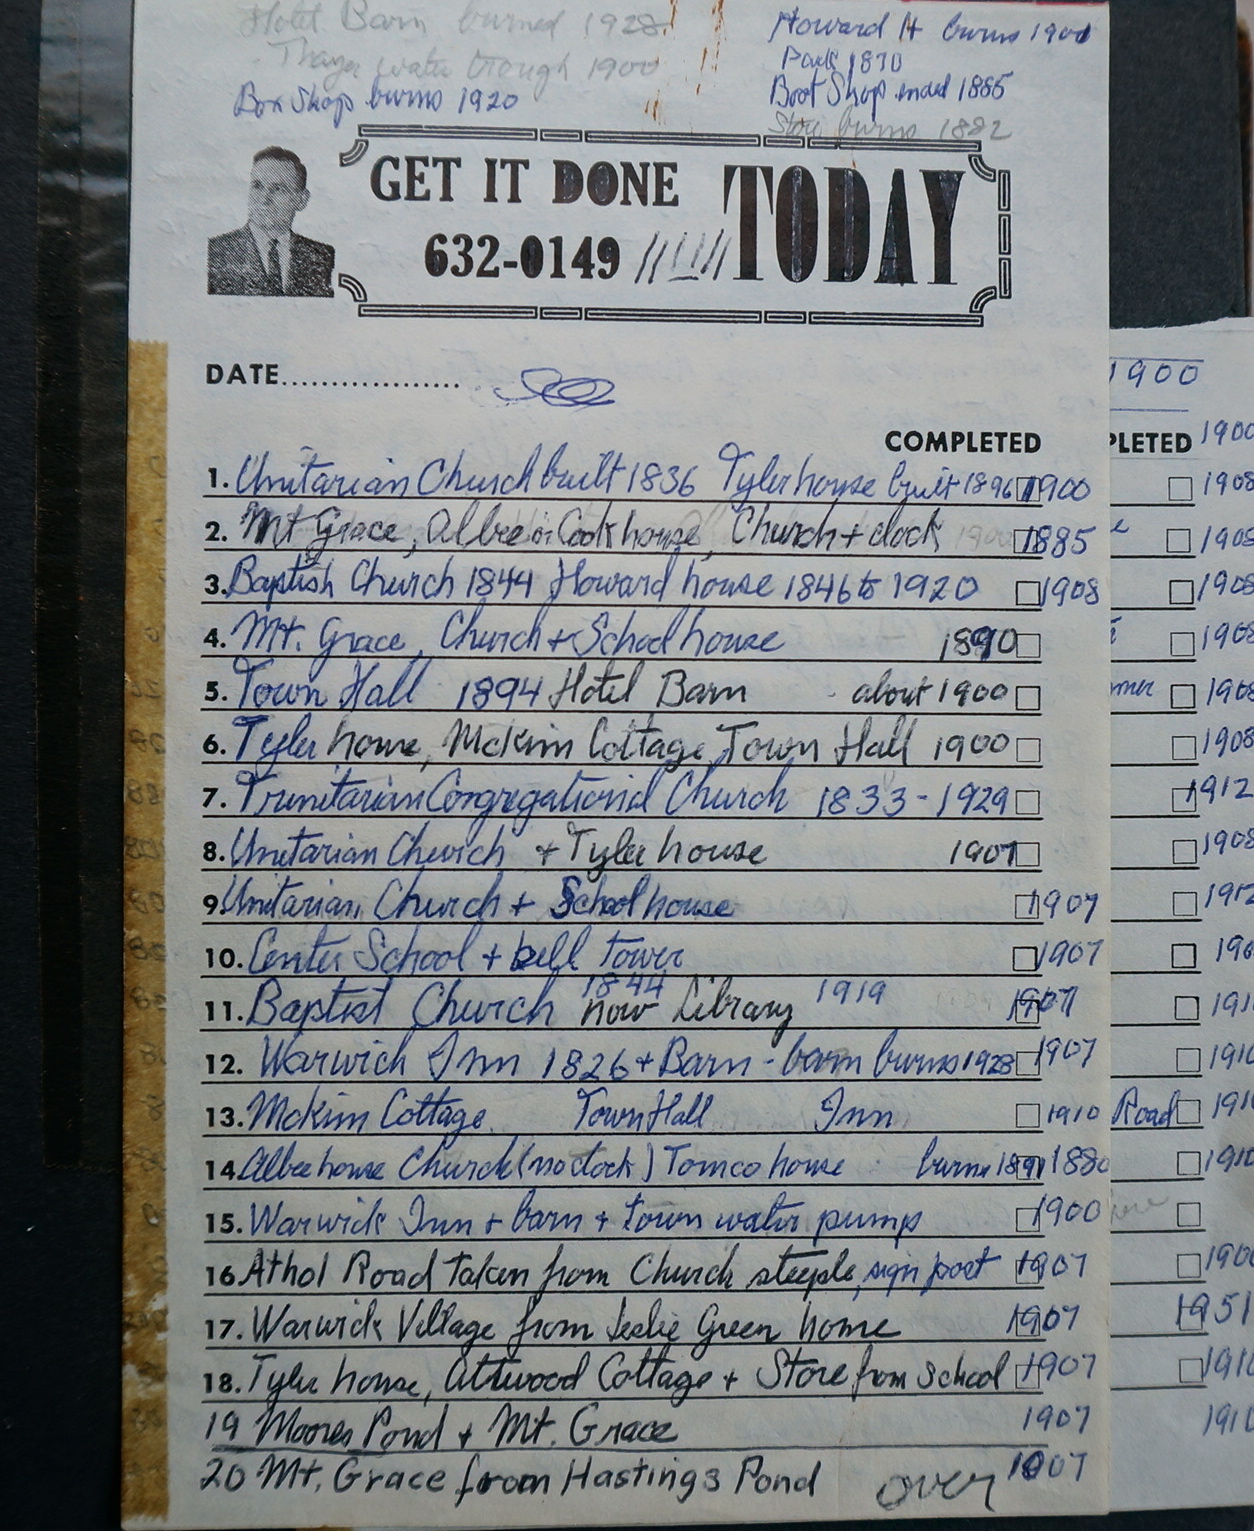 Hotel Barn burned 1928
Thayer water trough 1900
Box Shop burns 1920
Howard H burns 1900
Park 1870
Boot Shop ended 1885
Store burns 1882
GET IT DONE TODAY
632-0149
DATE
COMPLETED
1. Unitarian Church built 1836 Tyler house built 1896 1900
2. Mt Grace, Albee or Cook house, Church + clock 1885
3. Baptish Church 1844 Howard house 1846 to 1920 1908
4. Mt. Grace, Church + School house 1890
5. Town Hall 1894 Hotel Barn - about 1900
6. Tyler home, McKim Cottage, Town Hall 1900
7. Trinitarian Congregational Church 1833-1929
8. Unitarian Church + Tyler house 1907
9. Unitarian, Church + School house 1907
10. Center School + bell tower 1907
11. Baptist Church 1844 now Library 1919 1907
12. Warwick Inn 1826 + Barn - barn burns 1928 1907
13. McKim Cottage. Town Hall Inn 1910
14. Albee house Church (no clock) Tomco house burns 1891 1880
15. Warwick Inn + barn + town water pump 1900
16. Athol Road taken from Church steeple, sign post 1907
17. Warwick Village from Leslie Green home 1907
18. Tyler house, Attwood Cottage + Store from School 1907
19 Moores Pond + Mt. Grace 1907
20 Mt. Grace from Hastings Pond 1907
over
1900
PLETED 1900
1908
1908
1908
1908
1908
1908
1912
1908
1912
Road
1951